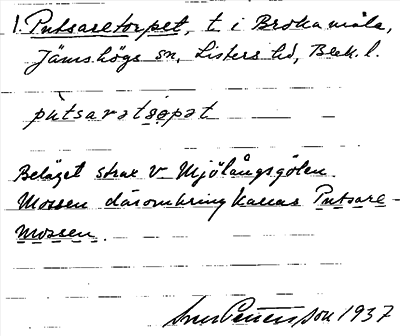 1. Putsaretorpet, t. i Brokamåla,
Jämshögs sn, Listers hd, Blek. l.
pùtsaratɔrpət
Beläget strax V Mjölångsgölen.
Mossen däromkring kallas Putsare-
mossen.
Pettersson 1937